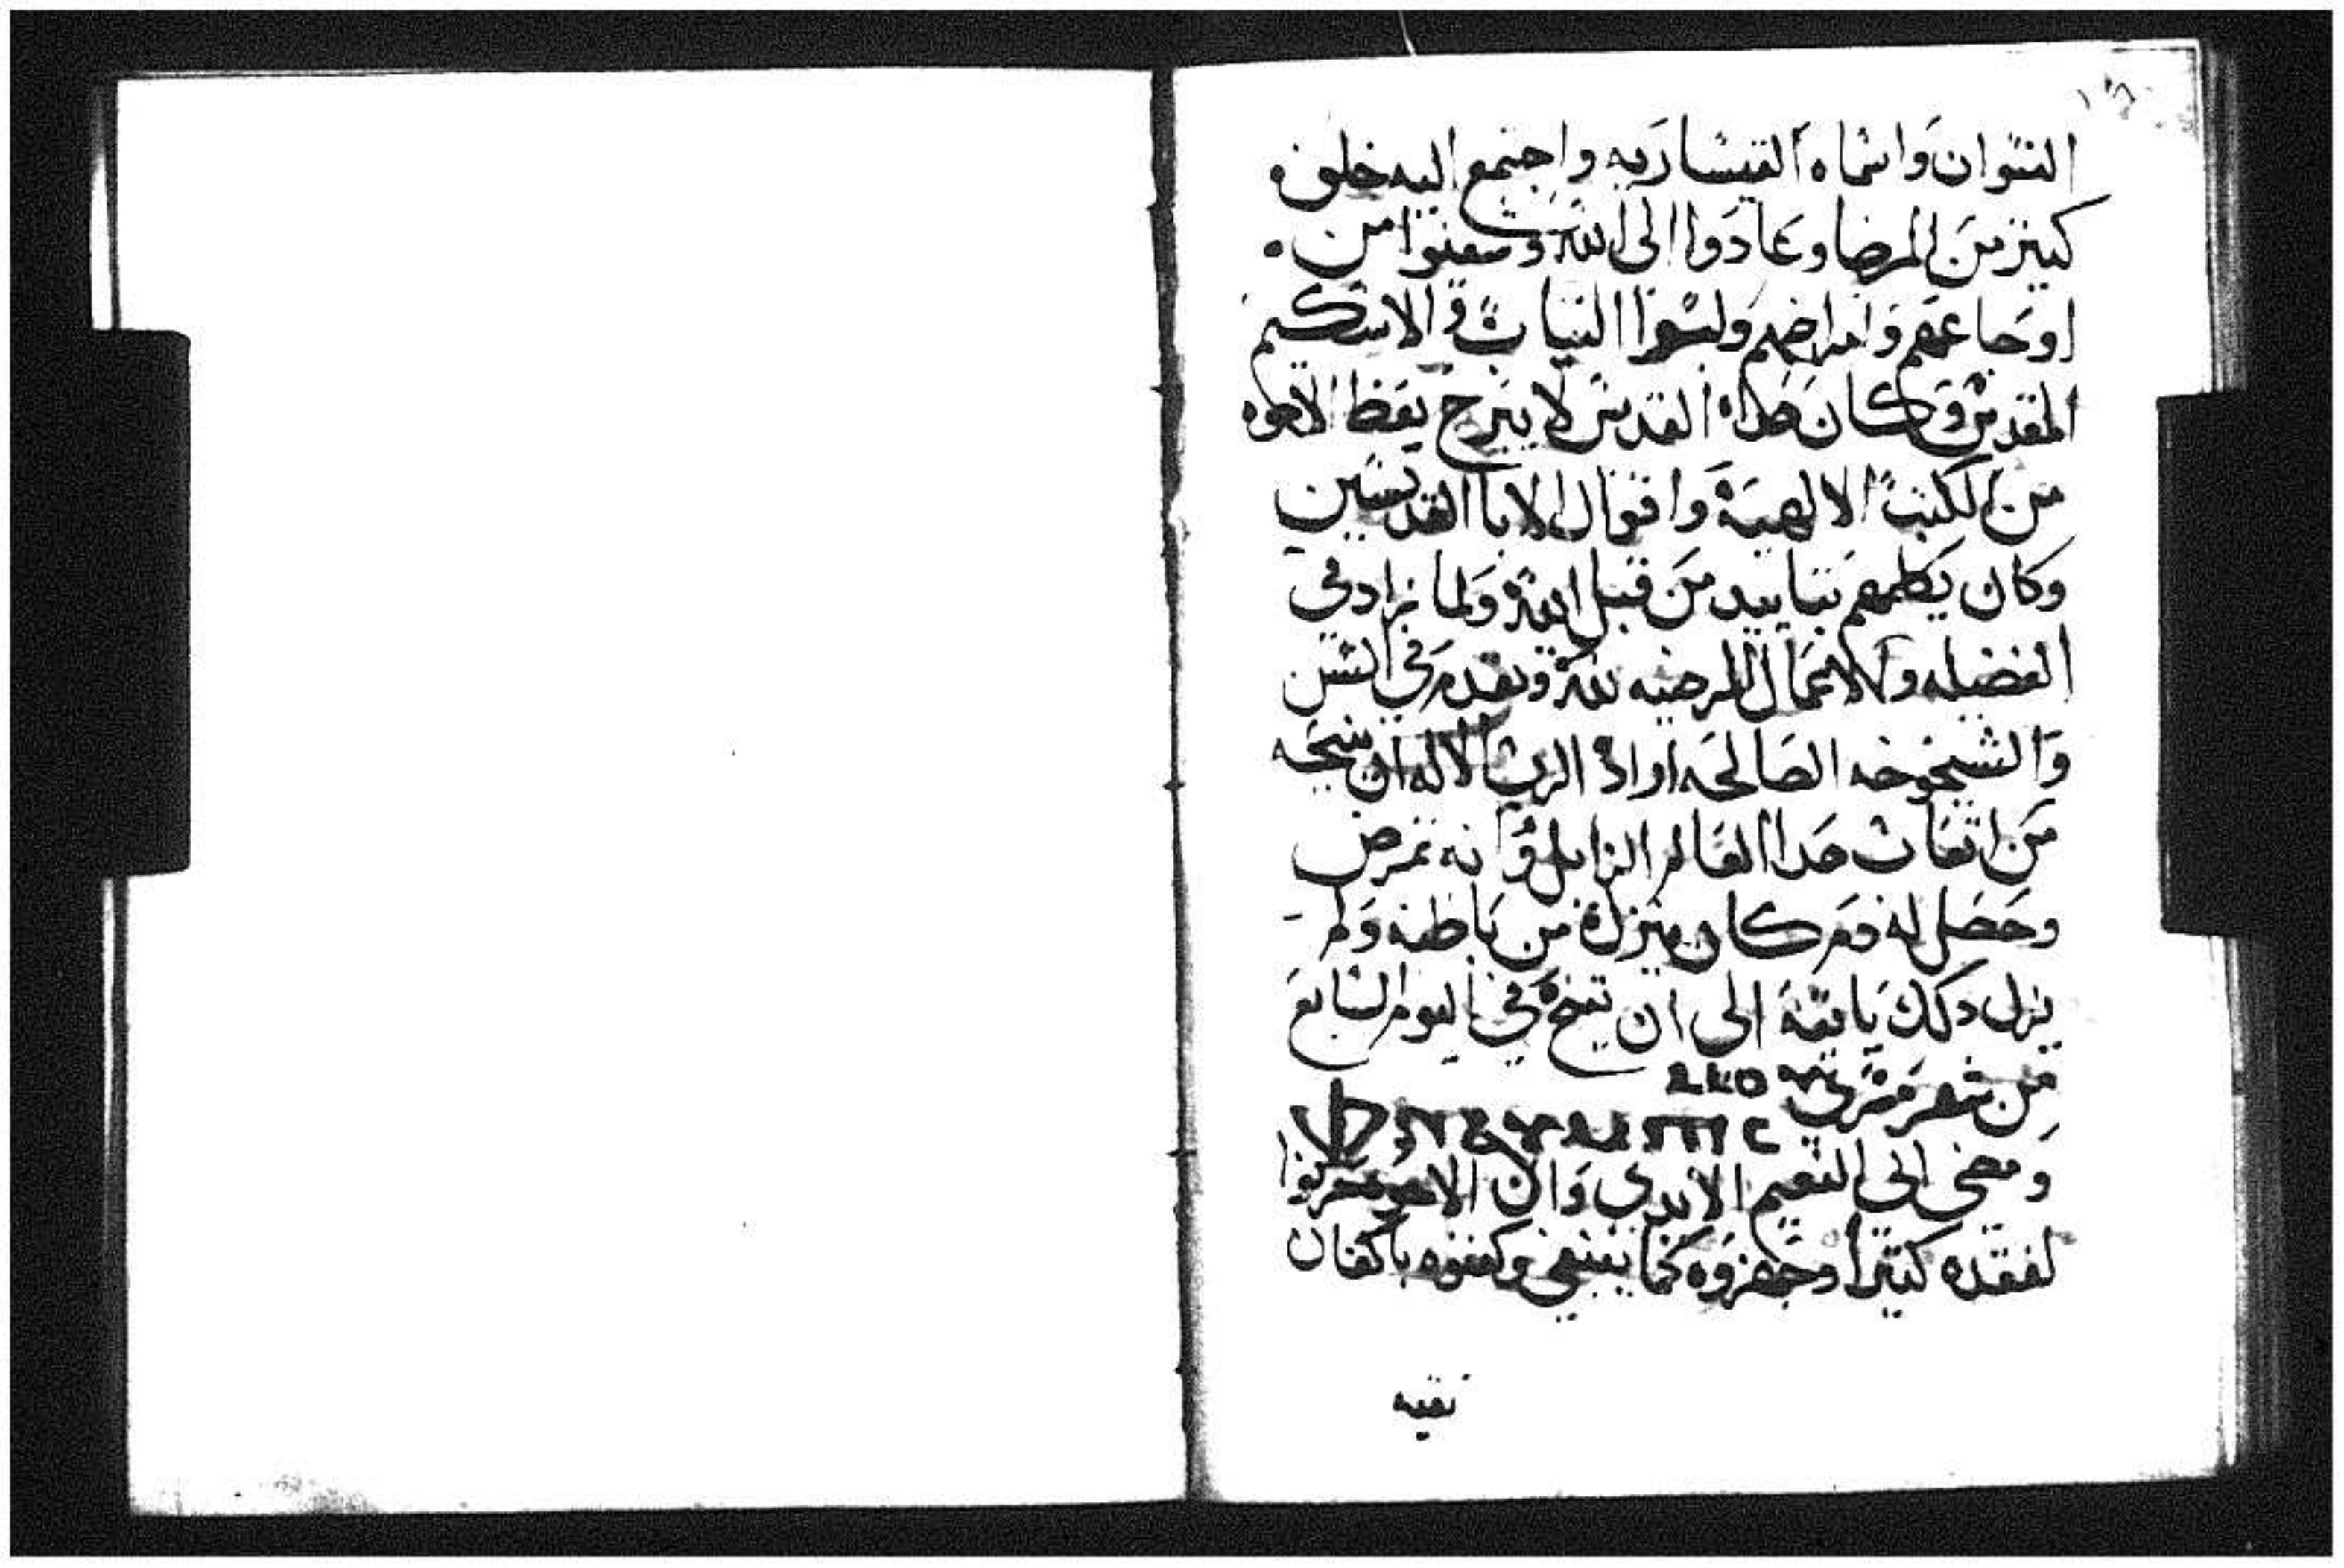 النشوان واسماه القيساريه واجتمع اليه خلق
كتير من المرضا وعادوا الى الله وشفيوا من
اوجاعهم وامراضهم ولبسوا التياب والاسكيم
المقدس وكان هداه القديس لا يبرح يعظ الاخوه
من الكتب الالهية واقوال الابا القديسين
وكان يكلمهم بتاييد من قبل الله ولما زاد في
الفضيله والاعمال المرضيه لله وتقدم في السن
والشيخوخه الصالحه اراد الرب الاله ان ينيحه
من اتعاب هدا العالم الزايل وانه تمرض
وحصل له دم كان ينزل من باطنه ولم
يزل دلك يامة الى ان تنيح في اليوم السابع
من شهر مسرى
ومضى الى النعيم الابدي وان الاخوه حزنوا
لفقده كتيرا وجهزوه كما ينبغي وكفنوه باكفان
نقيه